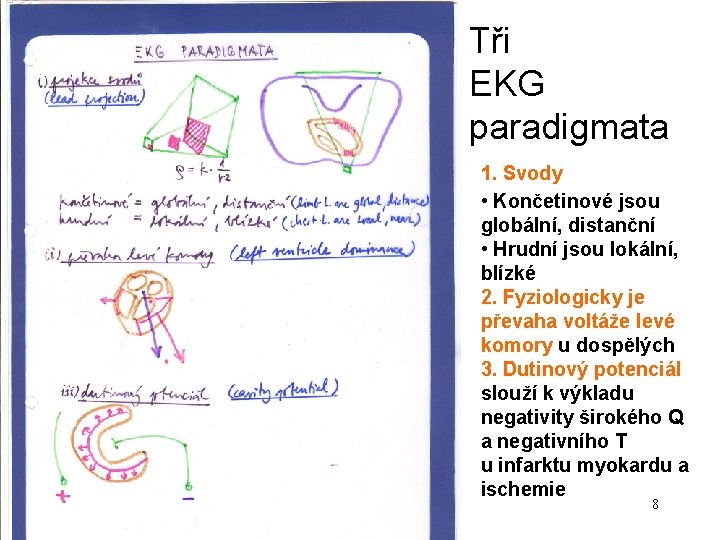 EKG PARADIGMATA
i) projekce svodů
(lead projection)
končetinové = globální, distanční (limb l. are global, distance)
hrudní = lokální, blízké (chest l. are local, near)
ii) převaha levé komory (left ventricle dominance)
iii) dutinový potenciál (cavity potential)
+ –
Tři
EKG
paradigmata
1. Svody
• Končetinové jsou
globální, distanční
• Hrudní jsou lokální,
blízké
2. Fyziologicky je
převaha voltáže levé
komory u dospělých
3. Dutinový potenciál
slouží k výkladu
negativity širokého Q
a negativního T
u infarktu myokardu a
ischemie
8